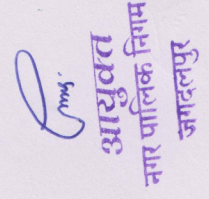 आयुक्त
नगर पालिक निगम
जगदलपुर